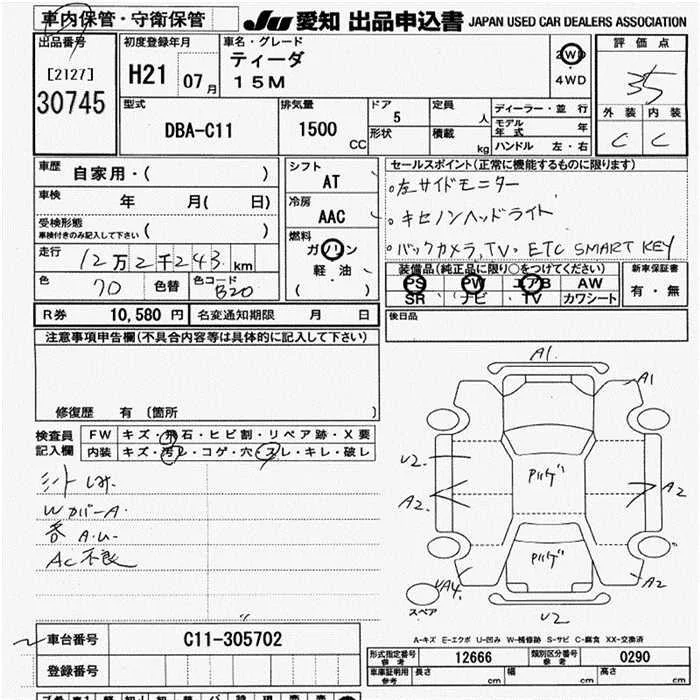 車内保管・守衛保管
JU 愛知 出品申込書 JAPAN USED CAR DEALERS ASSOCIATION
出品番号
[2127]
30745
初度登録年月
H21 07月
車名・グレード
ティーダ
15M
2WD
4WD
評価点
3.5
外装 内装
C C
型式
DBA-C11
排気量
1500 CC
ドア 5
形状
定員 人
積載 kg
ディーラー・並行
モデル年式 年
ハンドル 左・右
車歴 自家用・( )
車検 年 月( 日)
受検形態
車検付きのみ記入して下さい ( )
走行 12万2千243 km
色 70 色替 色コード B20
シフト AT
冷房 AAC
燃料
ガソリン
軽・油
( )
セールスポイント(正常に機能するものに限ります)
。左サイドモニター
。キセノンヘッドライト
。バックカメラ,TV・ETC SMART KEY
装備品(純正品に限り○をつけてください)
PS PW エアB AW
SR ナビ TV カワシート
新車保証書
有・無
R券 10,580 円 名変通知期限 月 日
後日品
注意事項申告欄(不具合内容等は具体的に記入して下さい)
修復歴 有 〔箇所 〕
検査員記入欄
FW キズ・飛石・ヒビ割・リペア跡・X要
内装 キズ・汚レ・コゲ・穴・スレ・キレ・破レ
シート しみ
Wカバー A.
各 A.U.
AC不良
A1.
A1
U2.
A2.
A2
A2
UA4.
U2
スペア
A-キズ E-エクボ U-凹み W-補修跡 S-サビ C-腐食 XX-交換済
車台番号 C11-305702
登録番号
形式指定番号 参考 12666 類別区分番号 参考 0290
車庫証明用 参考 長さ cm 幅 cm 高さ cm